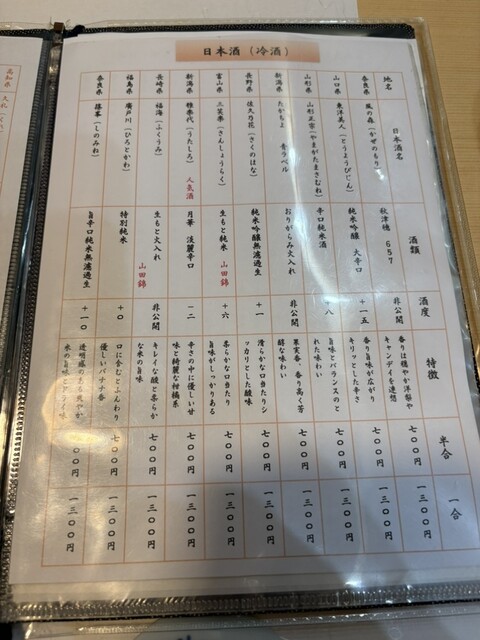 日本酒(冷酒)
地名 日本酒名 酒類 酒度 特徴 半合 一合
奈良県 風の森(かぜのもり) 秋津穂 657 非公開 香りは穏やか洋梨や
キャンディを連想 七〇〇円 一三〇〇円
山口県 東洋美人(とうようびじん) 純米吟醸 大辛口 +一五 香り旨味が広がり
キリッとした辛さ 七〇〇円 一三〇〇円
山形県 山形正宗(やまがたまさむね) 辛口純米酒 +八 旨味とバランスのと
れた味わい 七〇〇円 一三〇〇円
新潟県 たかちよ 青ラベル おりがらみ火入れ 非公開 果実香、香り高く芳
醇な味わい 七〇〇円 一三〇〇円
長野県 佐久乃花(さくのはな) 純米吟醸無濾過生 +一 滑らかな口当たりシ
ッカリとした酸味 七〇〇円 一三〇〇円
富山県 三笑楽(さんしょうらく) 生もと純米 山田錦 +六 柔らかな口当たり
旨味がしっかりある 七〇〇円 一三〇〇円
新潟県 雅楽代(うたしろ) 人気酒 月華 淡麗辛口 −二 辛さの中に優しい甘
味と綺麗な柑橘系 七〇〇円 一三〇〇円
長崎県 福海(ふくうみ) 生もと火入れ 山田錦 非公開 キレイな酸と柔らか
な米の旨味 七〇〇円 一三〇〇円
福島県 廣戸川(ひろとがわ) 特別純米 +〇 口に含むとふんわり
優しいバナナ香 七〇〇円 一三〇〇円
奈良県 篠峯(しのみね) 旨辛口純米無濾過生 +一〇 透明感のある爽やか
米の旨味と 〇〇円 一三〇〇円
高知県 久礼(くれ)